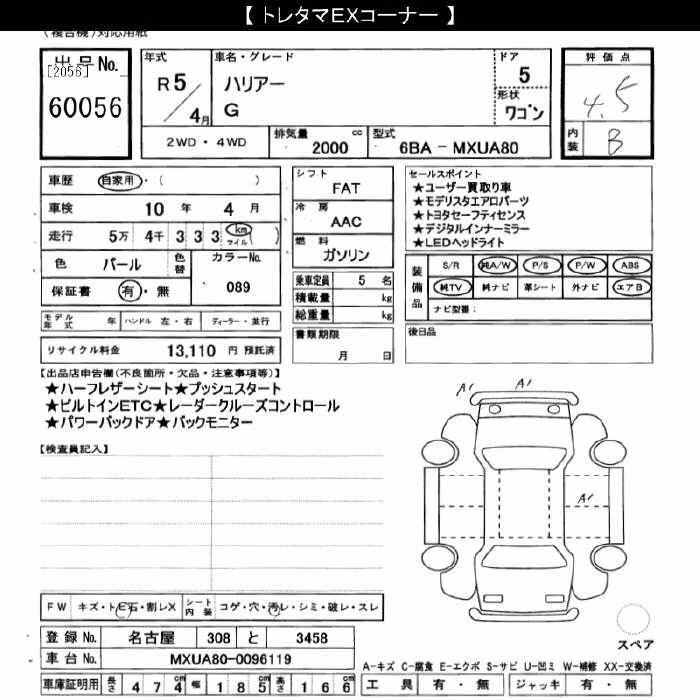 【 トレタマEXコーナー 】
(複合機)対応用紙
出品No.
[2056]
60056
年式
R 5 / 4月
車名・グレード
ハリアー
G
ドア
5
形状
ワゴン
評価点
4.5
内装
B
2WD ・ 4WD
排気量 cc
2000
型式
6BA - MXUA80
車歴 自家用 ・ ( )
車検 10 年 4 月
走行 5万 4千 3 3 3 km マイル ( )
色 パール 色替 カラーNo.
089
保証書 有 ・ 無
モデル年式 年 ハンドル 左・右 ディーラー・並行
リサイクル料金 13,110 円 預託済
シフト
FAT
冷房
AAC
燃料
ガソリン
乗車定員 5 名
積載量 kg
総重量 kg
書類期限
月 日
セールスポイント
★ユーザー買取り車
★モデリスタエアロパーツ
★トヨタセーフティセンス
★デジタルインナーミラー
★LEDヘッドライト
装備品
S/R 純A/W P/S P/W ABS
純TV 純ナビ 革シート 外ナビ エアB
ナビ型番:
後日品
【出品店申告欄(不良箇所・欠品・注意事項等)】
★ハーフレザーシート★プッシュスタート
★ビルトインETC★レーダークルーズコントロール
★パワーバックドア★バックモニター
【検査員記入】
A1 A1
A1
FW キズ・トビ石・割レX シート内装 コゲ・穴・汚レ・シミ・破レ・スレ
登録 No. 名古屋 308 と 3458
車台 No. MXUA80-0096119
車庫証明用 長さ 4 7 4 cm 幅 1 8 5 cm 高さ 1 6 6 cm
スペア
A-キズ C-腐食 E-エクボ S-サビ U-凹ミ W-補修 XX-交換済
工具 有 ・ 無 ジャッキ 有 ・ 無